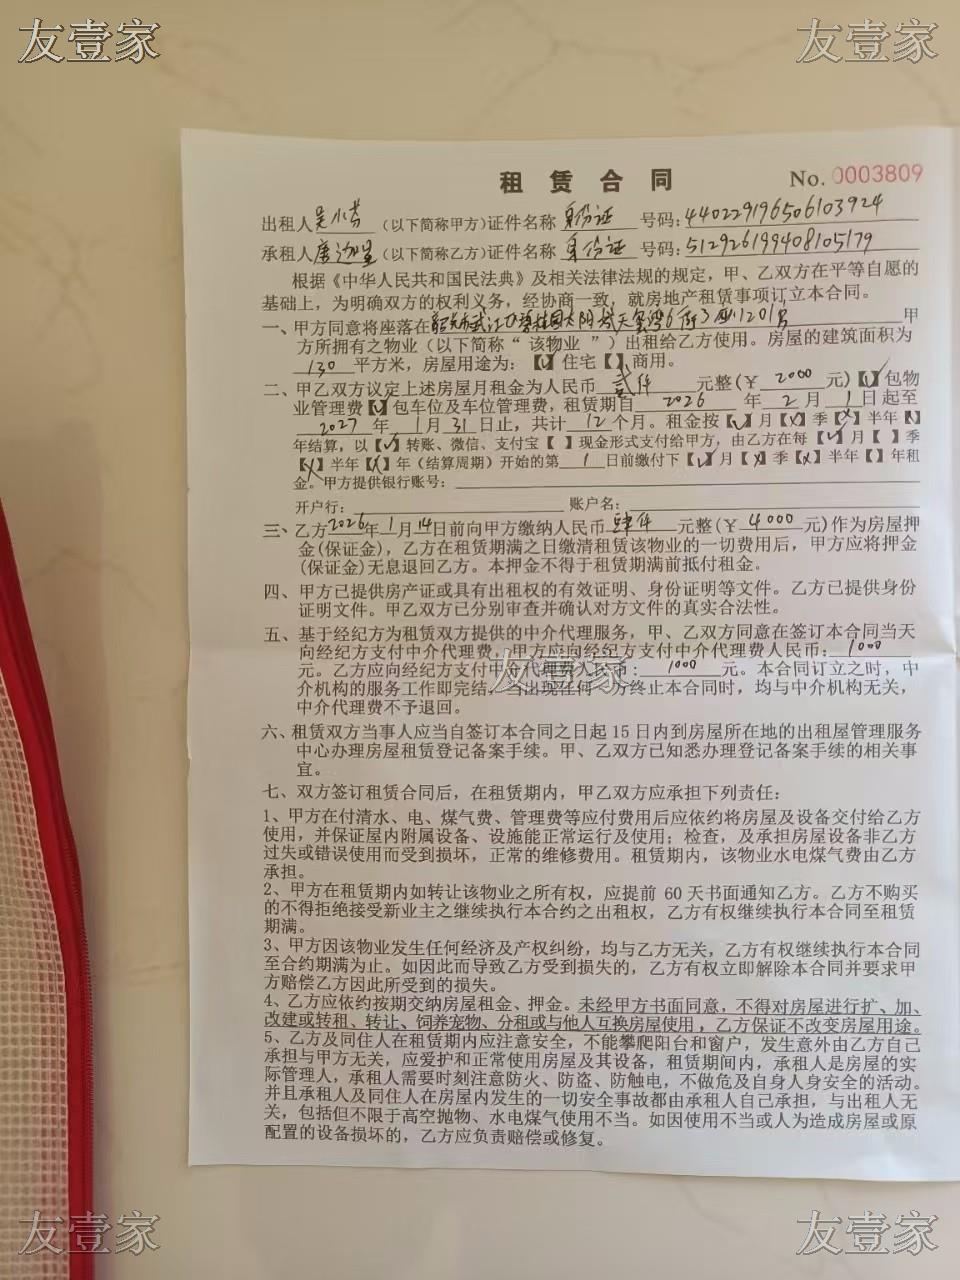 友壹家
友壹家
租 赁 合 同 No. 0003809
出租人吴小芳（以下简称甲方）证件名称 身份证 号码: 440229196506103924
承租人唐 （以下简称乙方）证件名称 身份证 号码: 512926199408105179
根据《中华人民共和国民法典》及相关法律法规的规定，甲、乙双方在平等自愿的
基础上，为明确双方的权利义务，经协商一致，就房地产租赁事项订立本合同。
一、甲方同意将座落在韶关市武江区碧桂园太阳城天玺湾6街3座1201房 甲
方所拥有之物业（以下简称“ 该物业 ”）出租给乙方使用。房屋的建筑面积为
130 平方米，房屋用途为：【√】住宅【 】商用。
二、甲乙双方议定上述房屋月租金为人民币 贰仟 元整(￥ 2000 元)【√】包物
业管理费【√】包车位及车位管理费，租赁期自 2026 年 2 月 1 日起至
2027 年 1 月 31 日止，共计 12 个月。租金按【√】月【×】季【×】半年【 】
年结算，以【√】转账、微信、支付宝【 】现金形式支付给甲方，由乙方在每【√】月【 】季
【×】半年【×】年（结算周期）开始的第 1 日前缴付下【√】月【×】季【×】半年【 】年租
金。甲方提供银行账号：
开户行： 账户名：
三、乙方2026年 1 月 14日前向甲方缴纳人民币 肆仟 元整(￥ 4000 元)作为房屋押
金(保证金)，乙方在租赁期满之日缴清租赁该物业的一切费用后，甲方应将押金
(保证金)无息退回乙方。本押金不得于租赁期满前抵付租金。
四、甲方已提供房产证或具有出租权的有效证明、身份证明等文件。乙方已提供身份
证明文件。甲乙双方已分别审查并确认对方文件的真实合法性。
五、基于经纪方为租赁双方提供的中介代理服务，甲、乙双方同意在签订本合同当天
向经纪方支付中介代理费。甲方应向经纪方支付中介代理费人民币： 1000
元。乙方应向经纪方支付中介代理费人民币： 1000 元。本合同订立之时，中
介机构的服务工作即完结，当出现任何一方终止本合同时，均与中介机构无关，
中介代理费不予退回。
友壹家
六、租赁双方当事人应当自签订本合同之日起 15 日内到房屋所在地的出租屋管理服务
中心办理房屋租赁登记备案手续。甲、乙双方已知悉办理登记备案手续的相关事
宜。
七、双方签订租赁合同后，在租赁期内，甲乙双方应承担下列责任：
1、甲方在付清水、电、煤气费、管理费等应付费用后应依约将房屋及设备交付给乙方
使用，并保证屋内附属设备、设施能正常运行及使用；检查，及承担房屋设备非乙方
过失或错误使用而受到损坏，正常的维修费用。租赁期内，该物业水电煤气费由乙方
承担。
2、甲方在租赁期内如转让该物业之所有权，应提前 60 天书面通知乙方。乙方不购买
的不得拒绝接受新业主之继续执行本合约之出租权，乙方有权继续执行本合同至租赁
期满。
3、甲方因该物业发生任何经济及产权纠纷，均与乙方无关，乙方有权继续执行本合同
至合约期满为止。如因此而导致乙方受到损失的，乙方有权立即解除本合同并要求甲
方赔偿乙方因此所受到的损失。
4、乙方应依约按期交纳房屋租金、押金。未经甲方书面同意，不得对房屋进行扩、加、
改建或转租、转让、饲养宠物、分租或与他人互换房屋使用，乙方保证不改变房屋用途。
5、乙方及同住人在租赁期内应注意安全，不能攀爬阳台和窗户，发生意外由乙方自己
承担与甲方无关，应爱护和正常使用房屋及其设备，租赁期间内，承租人是房屋的实
际管理人，承租人需要时刻注意防火、防盗、防触电，不做危及自身人身安全的活动。
并且承租人及同住人在房屋内发生的一切安全事故都由承租人自己承担，与出租人无
关，包括但不限于高空抛物、水电煤气使用不当。如因使用不当或人为造成房屋或原
配置的设备损坏的，乙方应负责赔偿或修复。
友壹家
友壹家